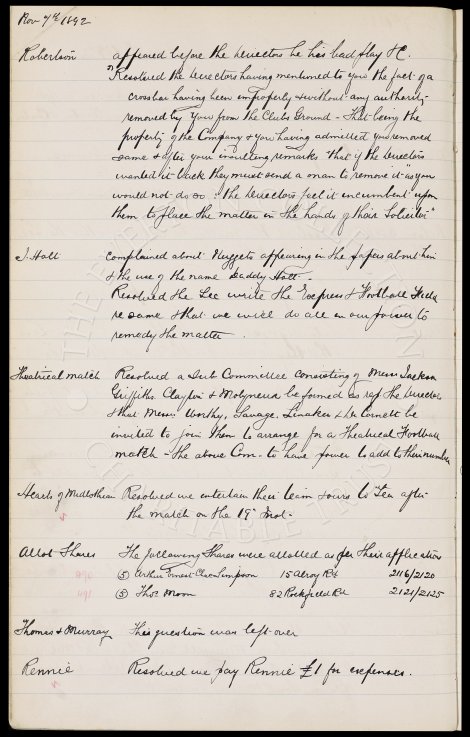 Nov 7th 1892
Robertson appeared before the Directors re his bad play &c.
Resolved the Directors having mentioned to you the fact of a
crossbar having been improperly & without any authority
removed by you from the Clubs Ground - That being the
property of the Company & you having admitted you removed
same & after your insulting remarks that if the Directors
wanted it back they must send a man to remove it "as you
would not do so". The Directors feel it incumbent upon
them to place the matter in the hands of their Solicitor"
J. Holt complained about Nuggets appearing in the papers about him
& the use of the name Daddy Holt.
Resolved the Sec write the Express & Football Field
re same & that we will do all in our power to
remedy the matter.
Theatrical match Resolved a Sub Committee consisting of Messrs Jackson
Griffiths Clayton & Molyneux be formed to rep the Directors
& that Messrs Worthy, Savage, Linaker & Dr Cornett be
invited to join them to arrange for a Theatrical Football
match - the above Com. to have power to add to their number
Hearts of Midlothian Resolved we entertain their team & ours to Tea after
the match on the 19th inst.
Allot Shares The following Shares were allotted as per their application
490 (5) Arthur Ernest Simpson 15 Alroy Rd 2116/2120
491 (5) Thos Moon 82 Rockfield Rd 2121/2125
Thomas & Murray This question was left over
Rennie Resolved we pay Rennie £1 for expenses.